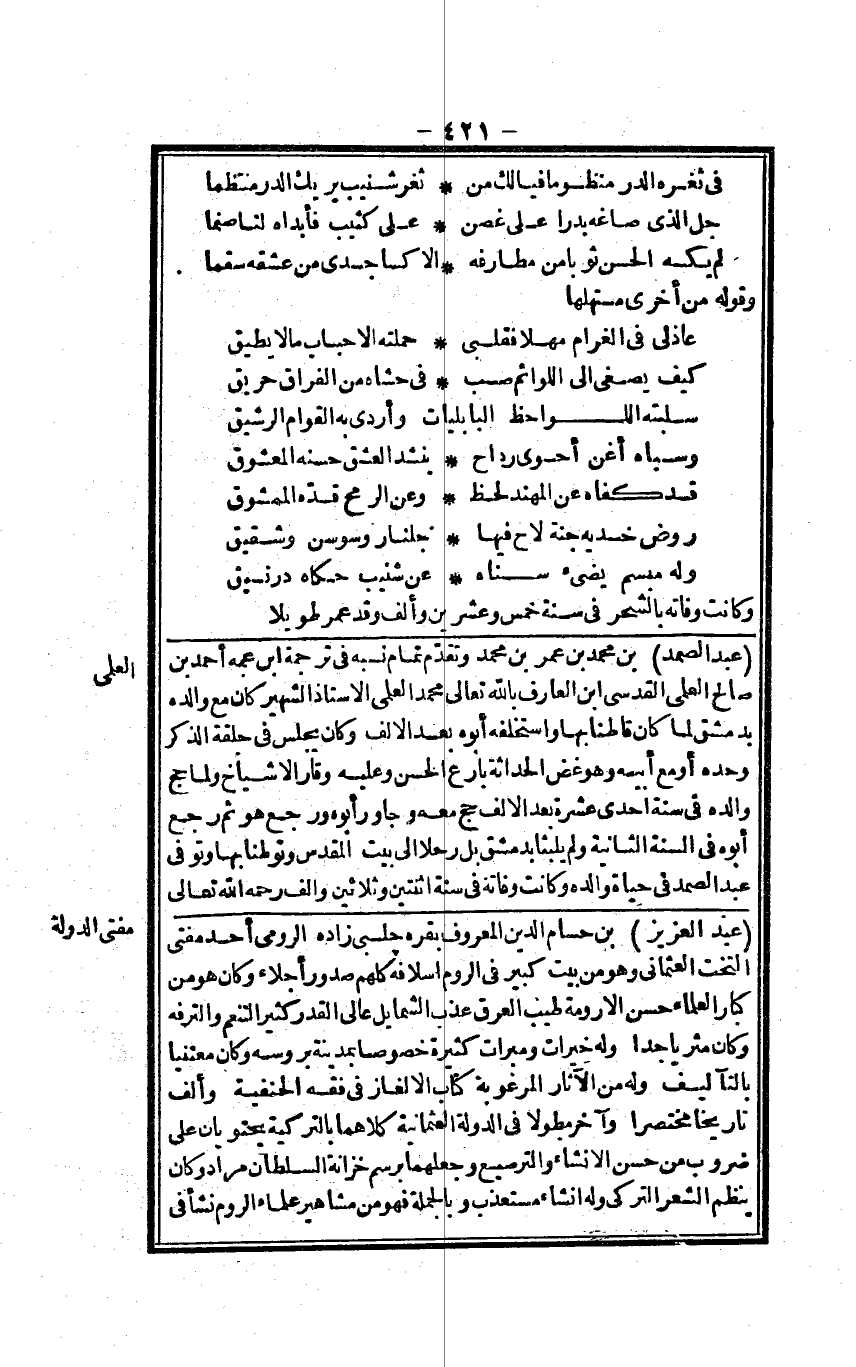 - ٤٢١ -
فى ثغره الدر منظوما فيالك من * ثغر شنيب يريك الدر منتظما
جل الذى صاغه بدرا على غصن * على كثيب فأبداه لنا صنما
لم يكسه الحسن ثوبا من مطارفه * الا كسا جسدى من عشقه سقما
وقوله من أخرى مستهلها
عاذلى فى الغرام مهلا فقلبى * حملته الاحباب مالا يطيق
كيف يصغى الى اللوائم صب * فى حشاه من الفراق حريق
سلبته اللواحظ البابليات وأردى به القوام الرشيق
وسباه أغن أحوى رداح * ينشد العشق حسنه المعشوق
قد كفاه عن المهند لحظ * وعن الرمح قده الممشوق
روض خديه جنة لاح فيها * جلنار وسوسن وشقيق
وله مبسم يضىء سناه * عن شنيب حكاه در نسيق
وكانت وفاته بالشحر فى سنة خمس وعشرين وألف وقد عمر طويلا
(عبد الصمد) بن محمد بن عمر بن محمد وتقدّم تمام نسبه فى ترجمة ابن عمه أحمد بن
العلى
صالح العلى القدسى ابن العارف بالله تعالى محمد العلى الاستاذ الشهير كان مع والده
بدمشق لما كان قاطنا بها واستخلفه أبوه بعد الالف وكان يجلس فى حلقة الذكر
وحده أو مع أبيه وهو غض الحداثة بارع الحسن وعليه وقار الاشياخ ولما حج
والده فى سنة احدى عشرة بعد الالف حج معه وجاور أبوه ورجع هو ثم رجع
أبوه فى السنة الثانية ولم يلبثا بدمشق بل رحلا الى بيت المقدس وتوطنا بها وتوفى
عبد الصمد فى حياة والده وكانت وفاته فى سنة اثنتين وثلاثين والف رحمه الله تعالى
(عبد العزيز) بن حسام الدين المعروف بقره جلبى زاده الرومى أحد مفتى
مفتى الدولة
التخت العثمانى وهو من بيت كبير فى الروم اسلافه كلهم صدور أجلاء وكان هو من
كبار العلماء حسن الارومة طيب العرق عذب الشمايل عالى القدر كثير التنعم والترفه
وكان مثريا جدا وله خيرات ومبرات كثيرة خصوصا بمدينة بروسه وكان معتنيا
بالتآليف وله من الآثار المرغوبة كتاب الالغاز فى فقه الحنفية وألف
تاريخا مختصرا وآخر مطولا فى الدولة العثمانية كلاهما بالتركية يحتويان على
ضروب من حسن الانشاء والترصيع وجعلهما برسم خزانة السلطان مراد وكان
ينظم الشعر التركى وله انشاء مستعذب وبالجملة فهو من مشاهير علماء الروم نشأ فى